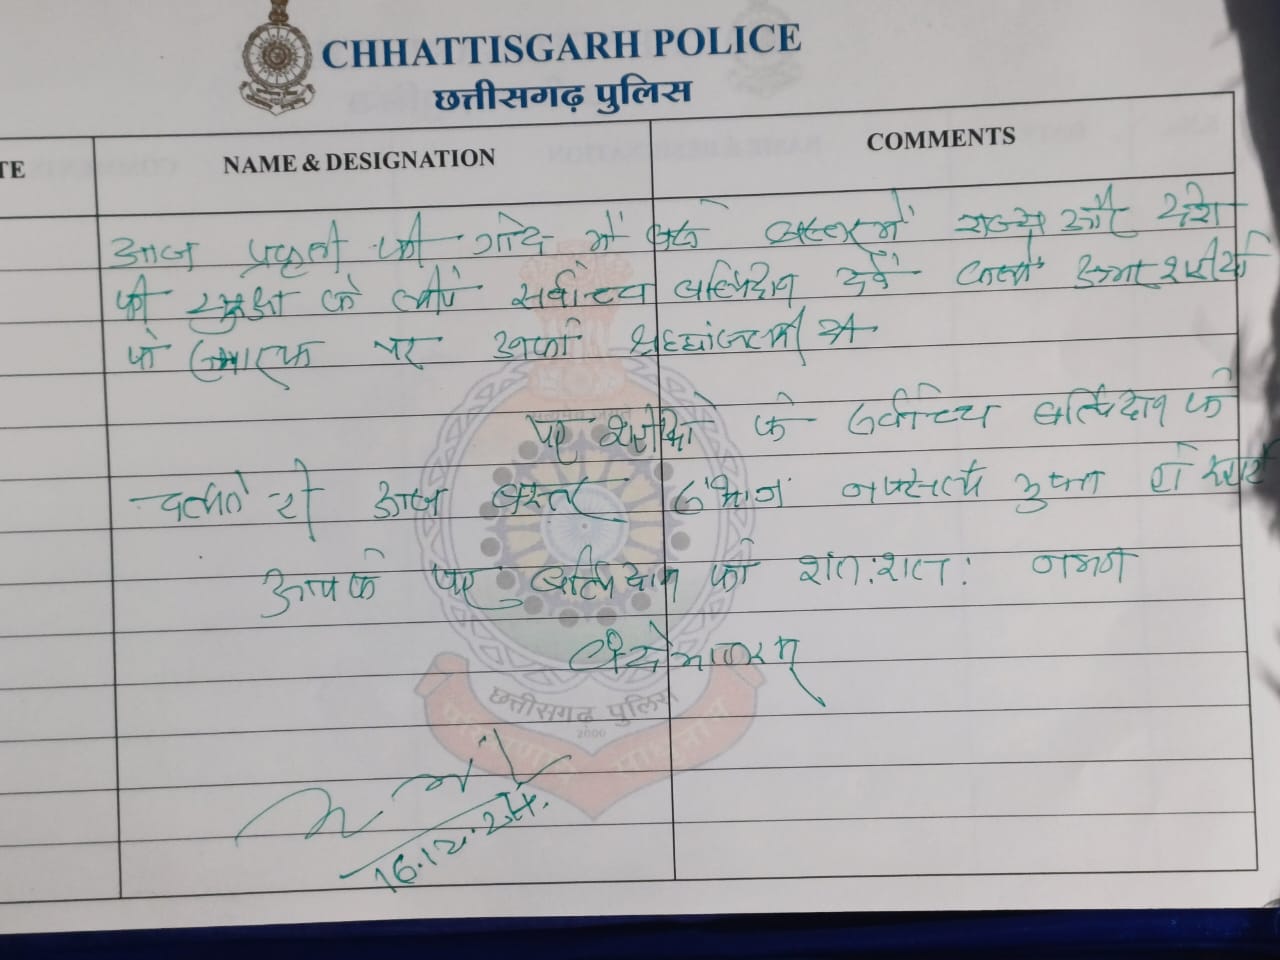 CHHATTISGARH POLICE
छत्तीसगढ़ पुलिस
TE NAME & DESIGNATION COMMENTS
आज प्रकृती की गोद में बसे बस्तर में राज्य और देश
की सुरक्षा के लीये सर्वोच्च बलिदान देने वाले अमर शहीदों
के स्मारक पर श्रद्धांजली
शहीदों के सर्वोच्च बलिदान के
चलते ही आज बस्तर संभाग नक्सल मुक्त हो
आपके बलिदान को शत:शत: नमन
वंदेमातरम्
छत्तीसगढ़ पुलिस
2000
परित्राणाय साधूनाम
16.12.24.